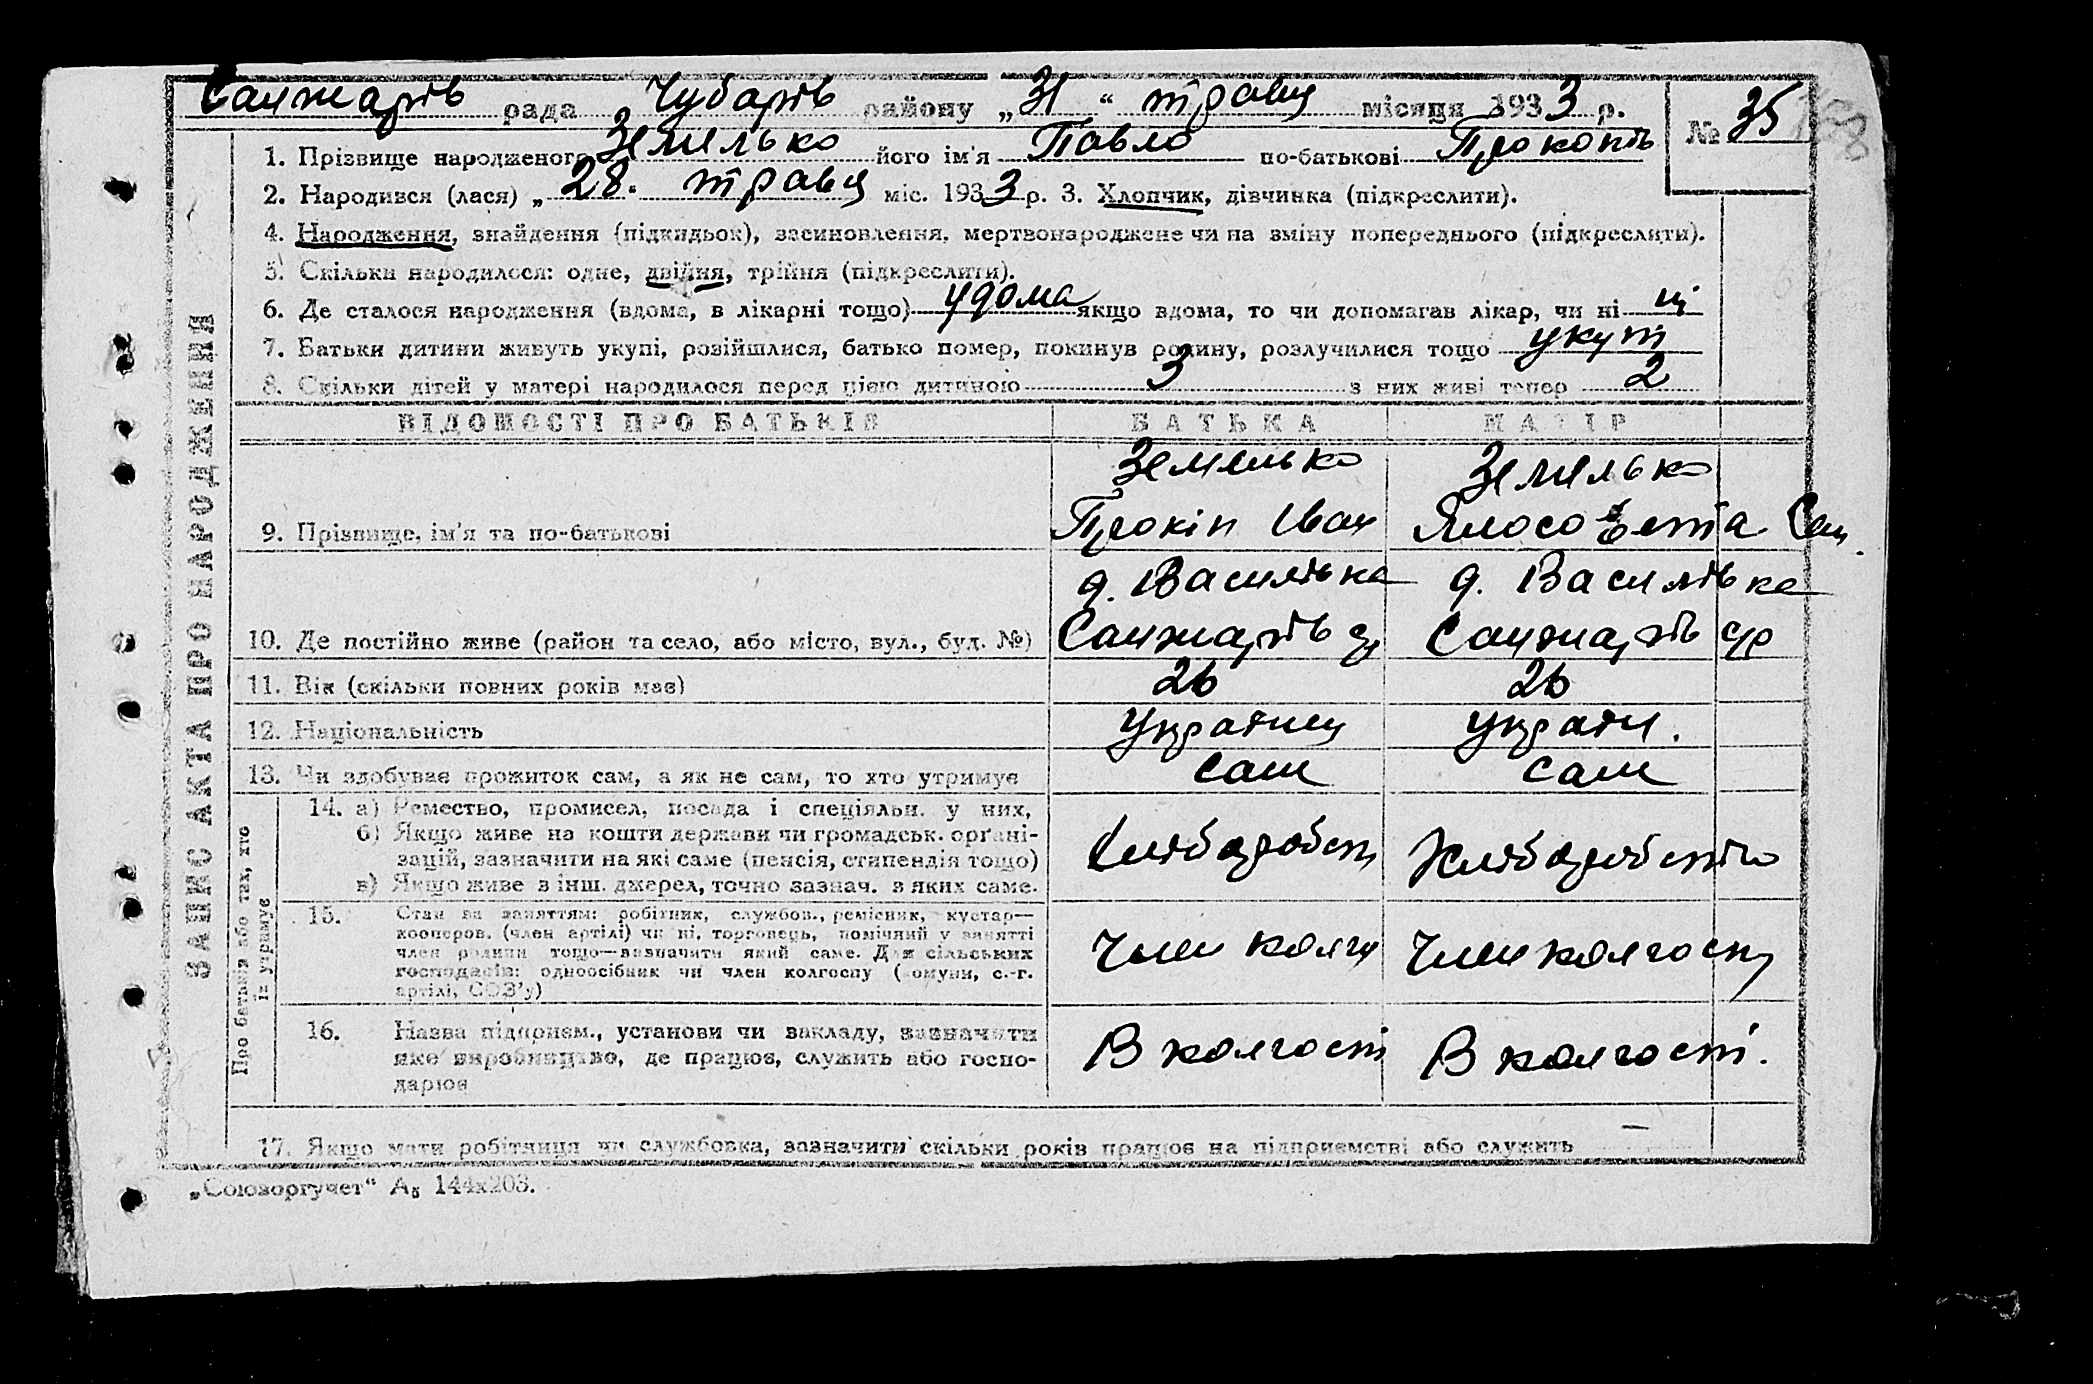 Санжарів рада Чубарів району „31“ травня місяця 1933 р. № 35
1. Прізвище народженого Земелько його ім'я Павло по-батькові Прокопів
2. Народився (лася) „28. травня міс. 1933 р. 3. Хлопчик, дівчинка (підкреслити).
4. Народження, знайдення (підкидьок), засиновлення, мертвонароджене чи на зміну попереднього (підкреслити).
5. Скільки народилося: одне, двійня, трійня (підкреслити).
6. Де сталося народження (вдома, в лікарні тощо) удома якщо вдома, то чи допомагав лікар, чи ні ні
7. Батьки дитини живуть укупі, розійшлися, батько помер, покинув родину, розлучилися тощо укупі
8. Скільки дітей у матері народилося перед цією дитиною 3 з них живі тепер 2
ВІДОМОСТІ ПРО БАТЬКІВ БАТЬКА МАТІР
Земелько Земелько
9. Прізвище, ім'я та по-батькові Прокіп Іван
д. Василівка д. Василівка
10. Де постійно живе (район та село, або місто, вул., буд. №) Санжарів Санжарів
11. Вік (скільки повних років має) 26 26
12. Національність Українец Україн.
13. Чи здобуває прожиток сам, а як не сам, то хто утримує сам сам
14. а) Ремество, промисел, посада і спеціяльн. у них,
б) Якщо живе на кошти держави чи громадськ. орґані-
зацій, зазначити на які саме (пенсія, стипендія тощо)
в) Якщо живе з інш. джерел, точно зазнач. з яких саме.
Хлібороб
15. Стан за заняттям: робітник, службов., ремісник, кустар—
кооперов. (член артілі) чи ні, торговець, помічний у занятті
член родини тощо—зазначити який саме. Для сільських
господарів: одноосібник чи член колгоспу (комуни, с.-г.
артілі, СОЗ'у)
Член колгос Член колгоспу
16. Назва підприєм., установи чи закладу, зазначити
яке виробництво, де працює, служить або госпо-
дарює
В колгоспі В колгоспі.
17. Якщо мати робітниця чи службовка, зазначити скільки років працює на підприємстві або служить —
„Союзоргучет“ А5 144х203.
ЗАПИС АКТА ПРО НАРОДЖЕННЯ
Про батьків або тих, хто
їх утримує